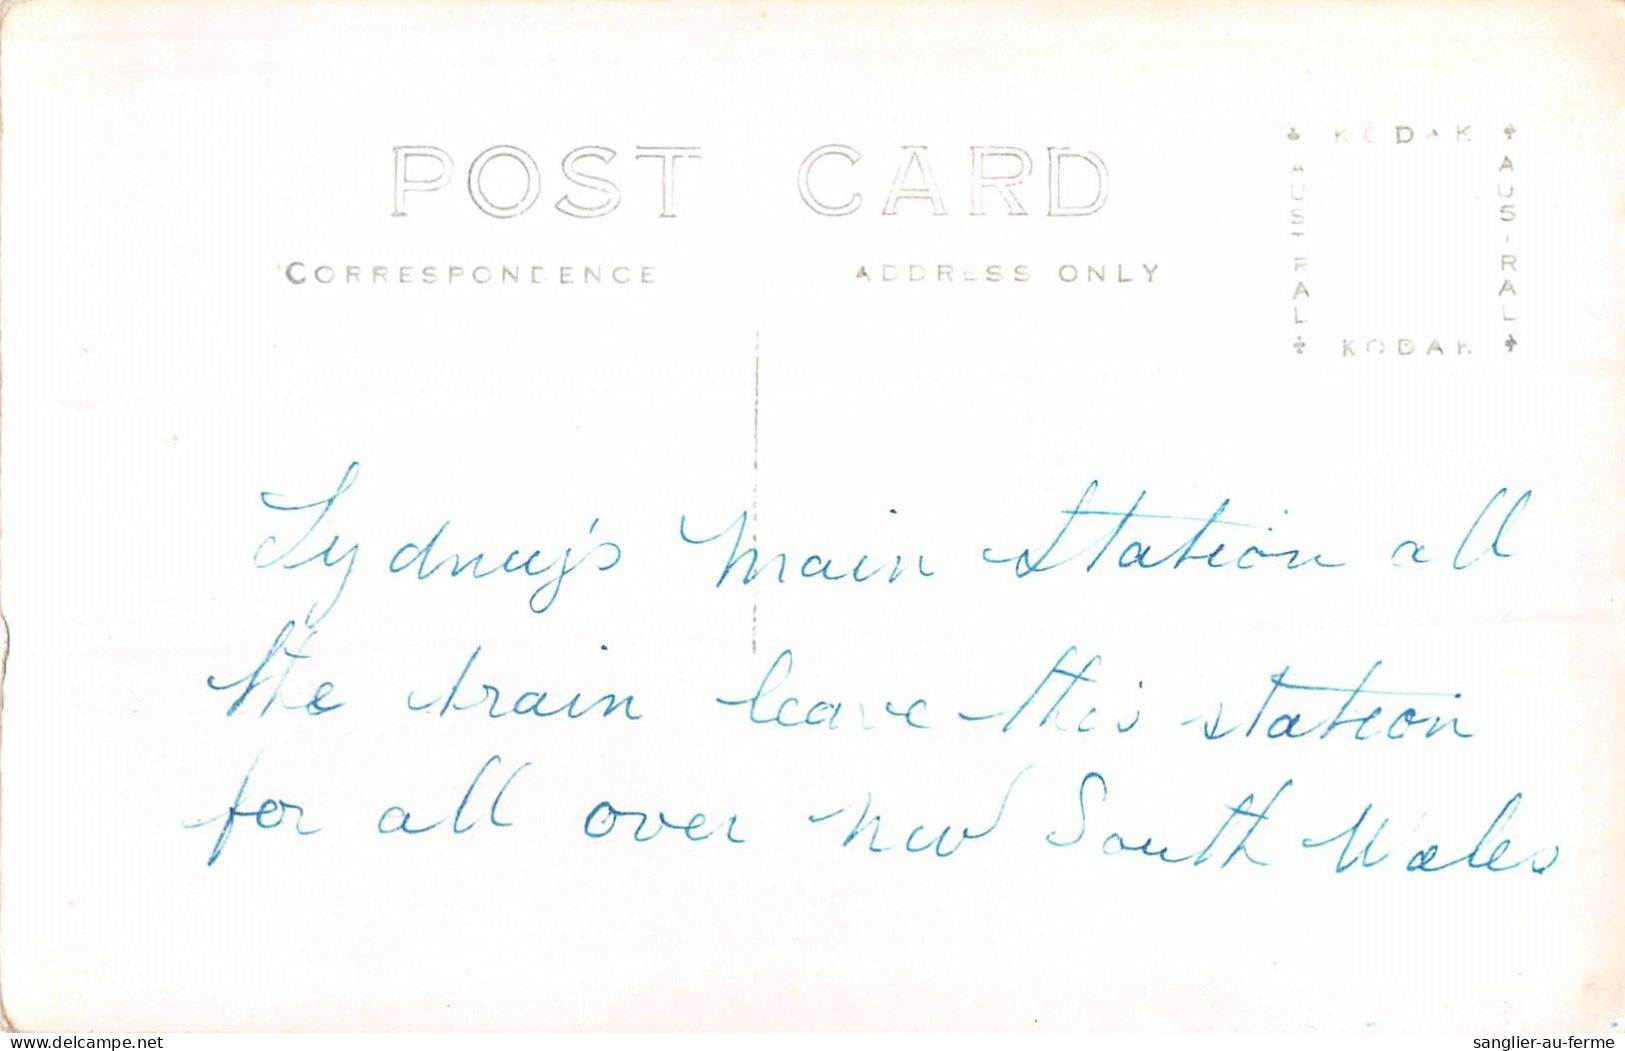 POST CARD
CORRESPONDENCE ADDRESS ONLY
KODAK
AUSTRAL
AUSTRAL
KODAK
Sydney's Main Station all
the train leave this station
for all over new South Wales
delcampe.net
sanglier-au-ferme